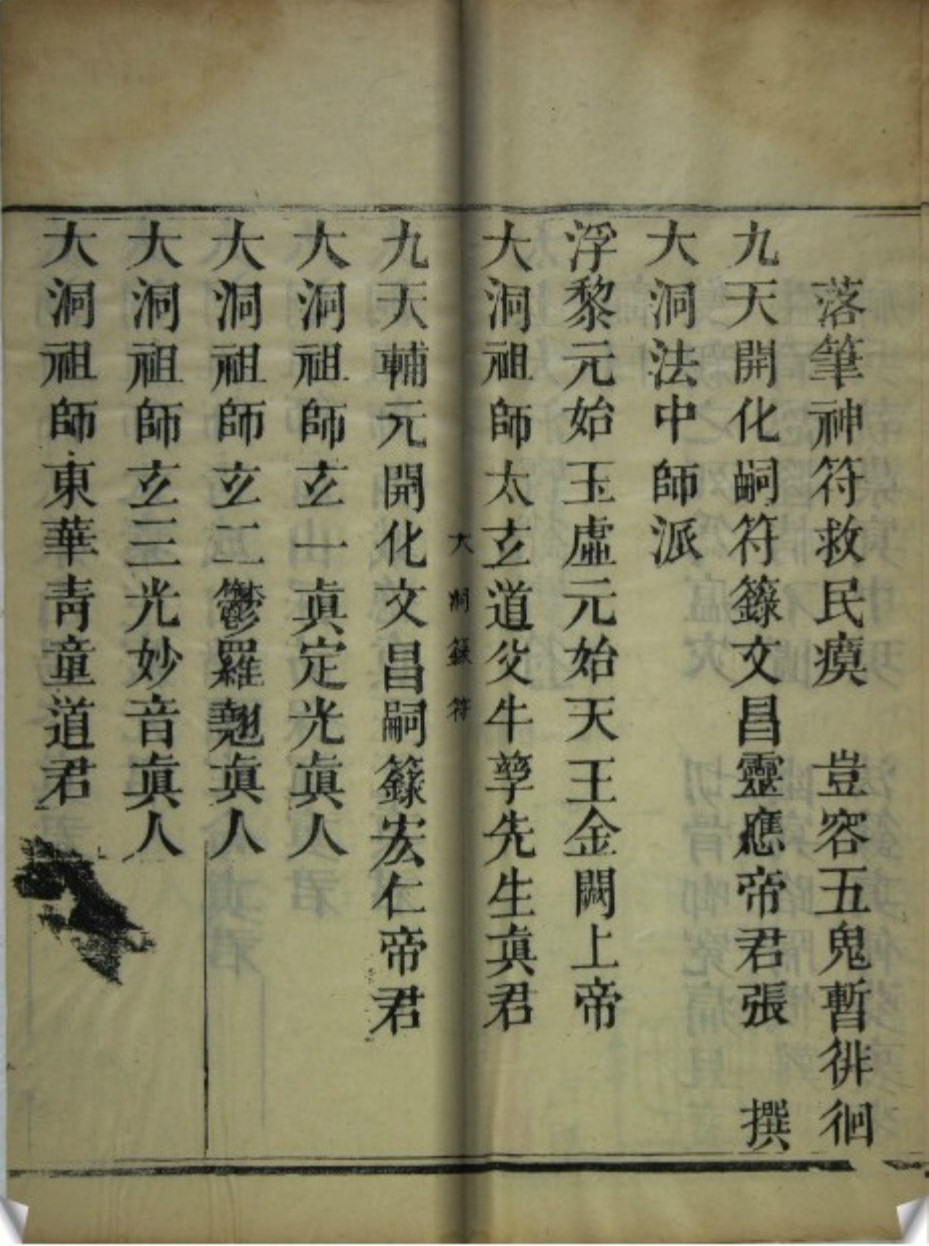 落筆神符救民瘼　豈容五鬼暫徘徊
九天開化嗣符籙文昌靈應帝君張　撰
大洞法中師派
浮黎元始玉虛元始天王金闕上帝
大洞祖師太玄道父牛孳先生眞君
大洞籙符
九天輔元開化文昌嗣籙宏仁帝君
大洞祖師玄一眞定光眞人
大洞祖師玄二鬱羅翹眞人
大洞祖師玄三光妙音眞人
大洞祖師東華靑童道君